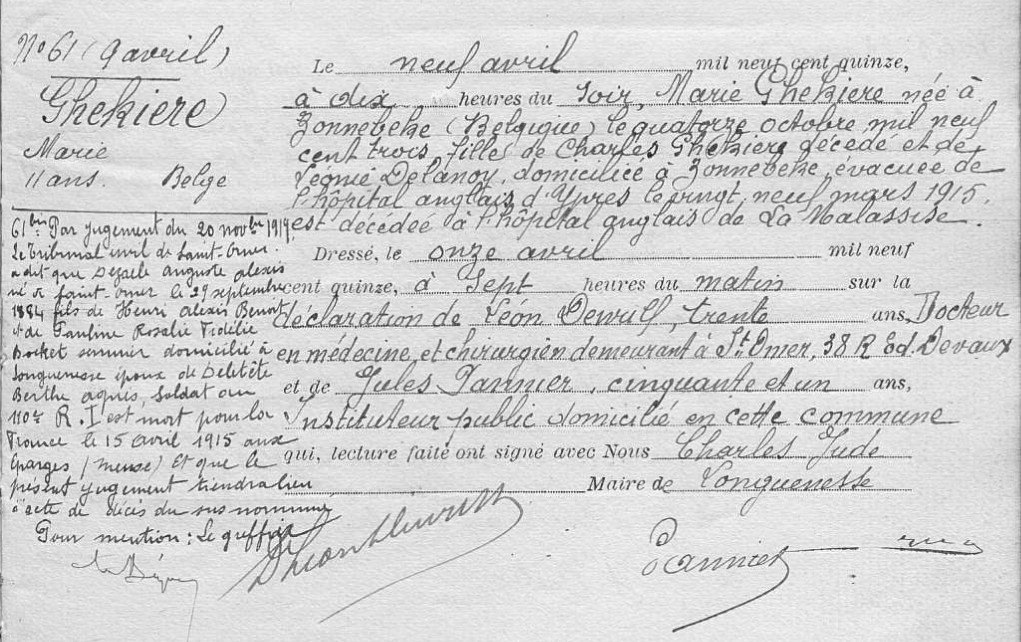 N° 61 (9 avril)
Ghekiere
Marie
11 ans. Belge
Le neuf avril mil neuf cent quinze,
à dix heures du Soir, Marie Ghekiere née à
Zonnebeke (Belgique) le quatorze octobre mil neuf
cent trois, filles de Charles Ghekiere décédé et de
Léonie Delanoy, domiciliée à Zonnebeke, évacuée de
l'hôpital anglais d'Ypres le vingt neuf mars 1915.
est décédée à l'hôpital anglais de La Malassise.
Dressé, le onze avril mil neuf
cent quinze, à Sept heures du matin sur la
déclaration de Léon Dewulf, trente ans, Docteur
en médecine, et chirurgien demeurant à St Omer, 38 R Ed. Devaux
et de Jules Pannier, cinquante et un ans,
Instituteur public domicilié en cette commune
qui, lecture faite ont signé avec Nous Charles Jude
Maire de Longuenesse
61bis Par jugement du 20 novbre 1919
Le Tribunal civil de Saint-Omer
a dit que auguste alexis
né à Saint-omer le 29 septembre
1884 fils de Henri alexis Benoit
et de Pauline Rosalie Fidélie
domicilié à
Longuenesse époux de Delétète
Berthe agnès, Soldat au
110e R. I est mort pour la
France le 15 avril 1915 aux
éparges (meuse) Et que le
présent jugement tiendra lieu
d'acte de décès du sus nommé
Pour mention : Le greffier
Pannier